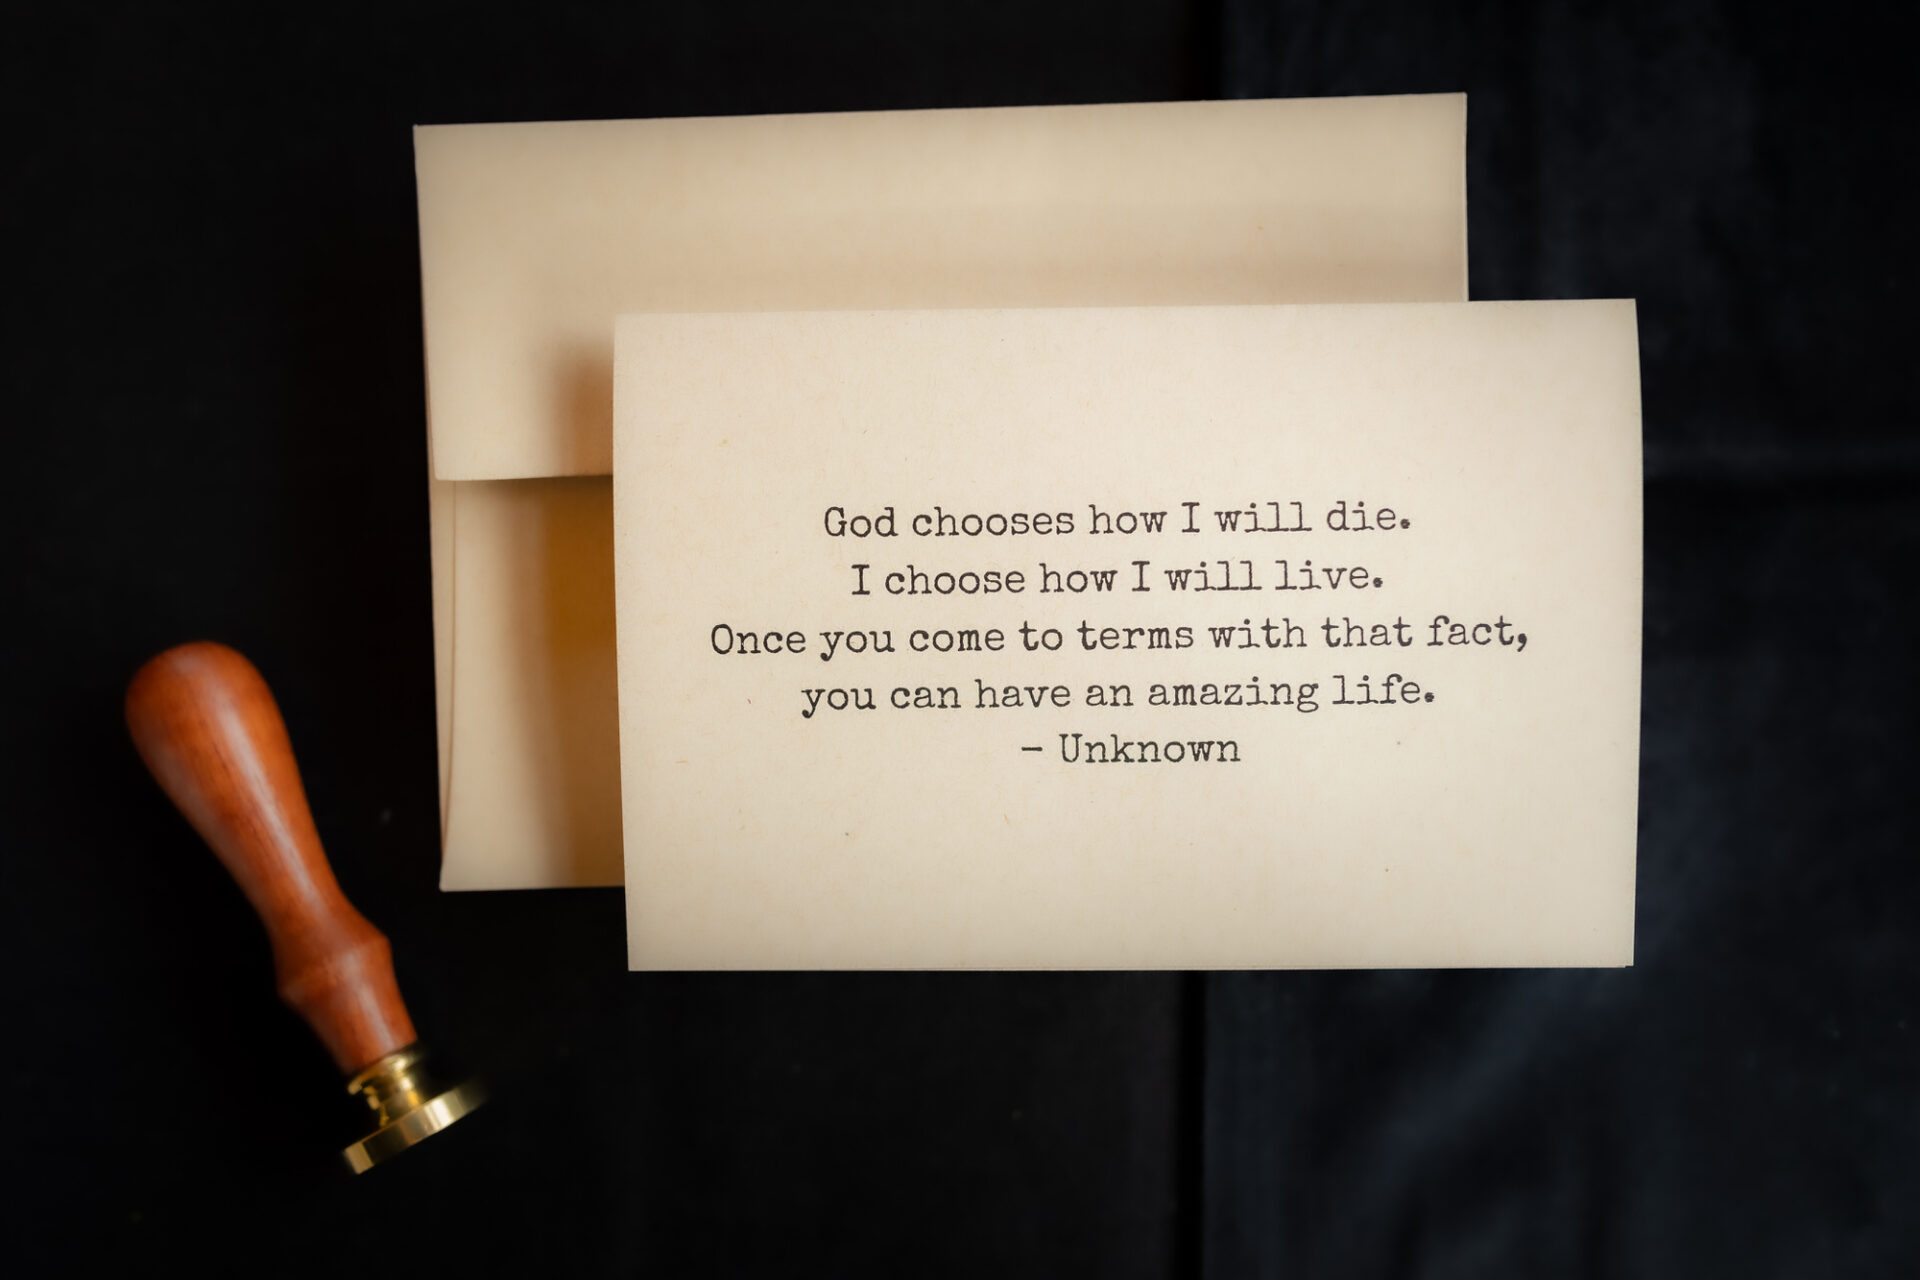 God chooses how I will die.
I choose how I will live.
Once you come to terms with that fact,
you can have an amazing life.
– Unknown